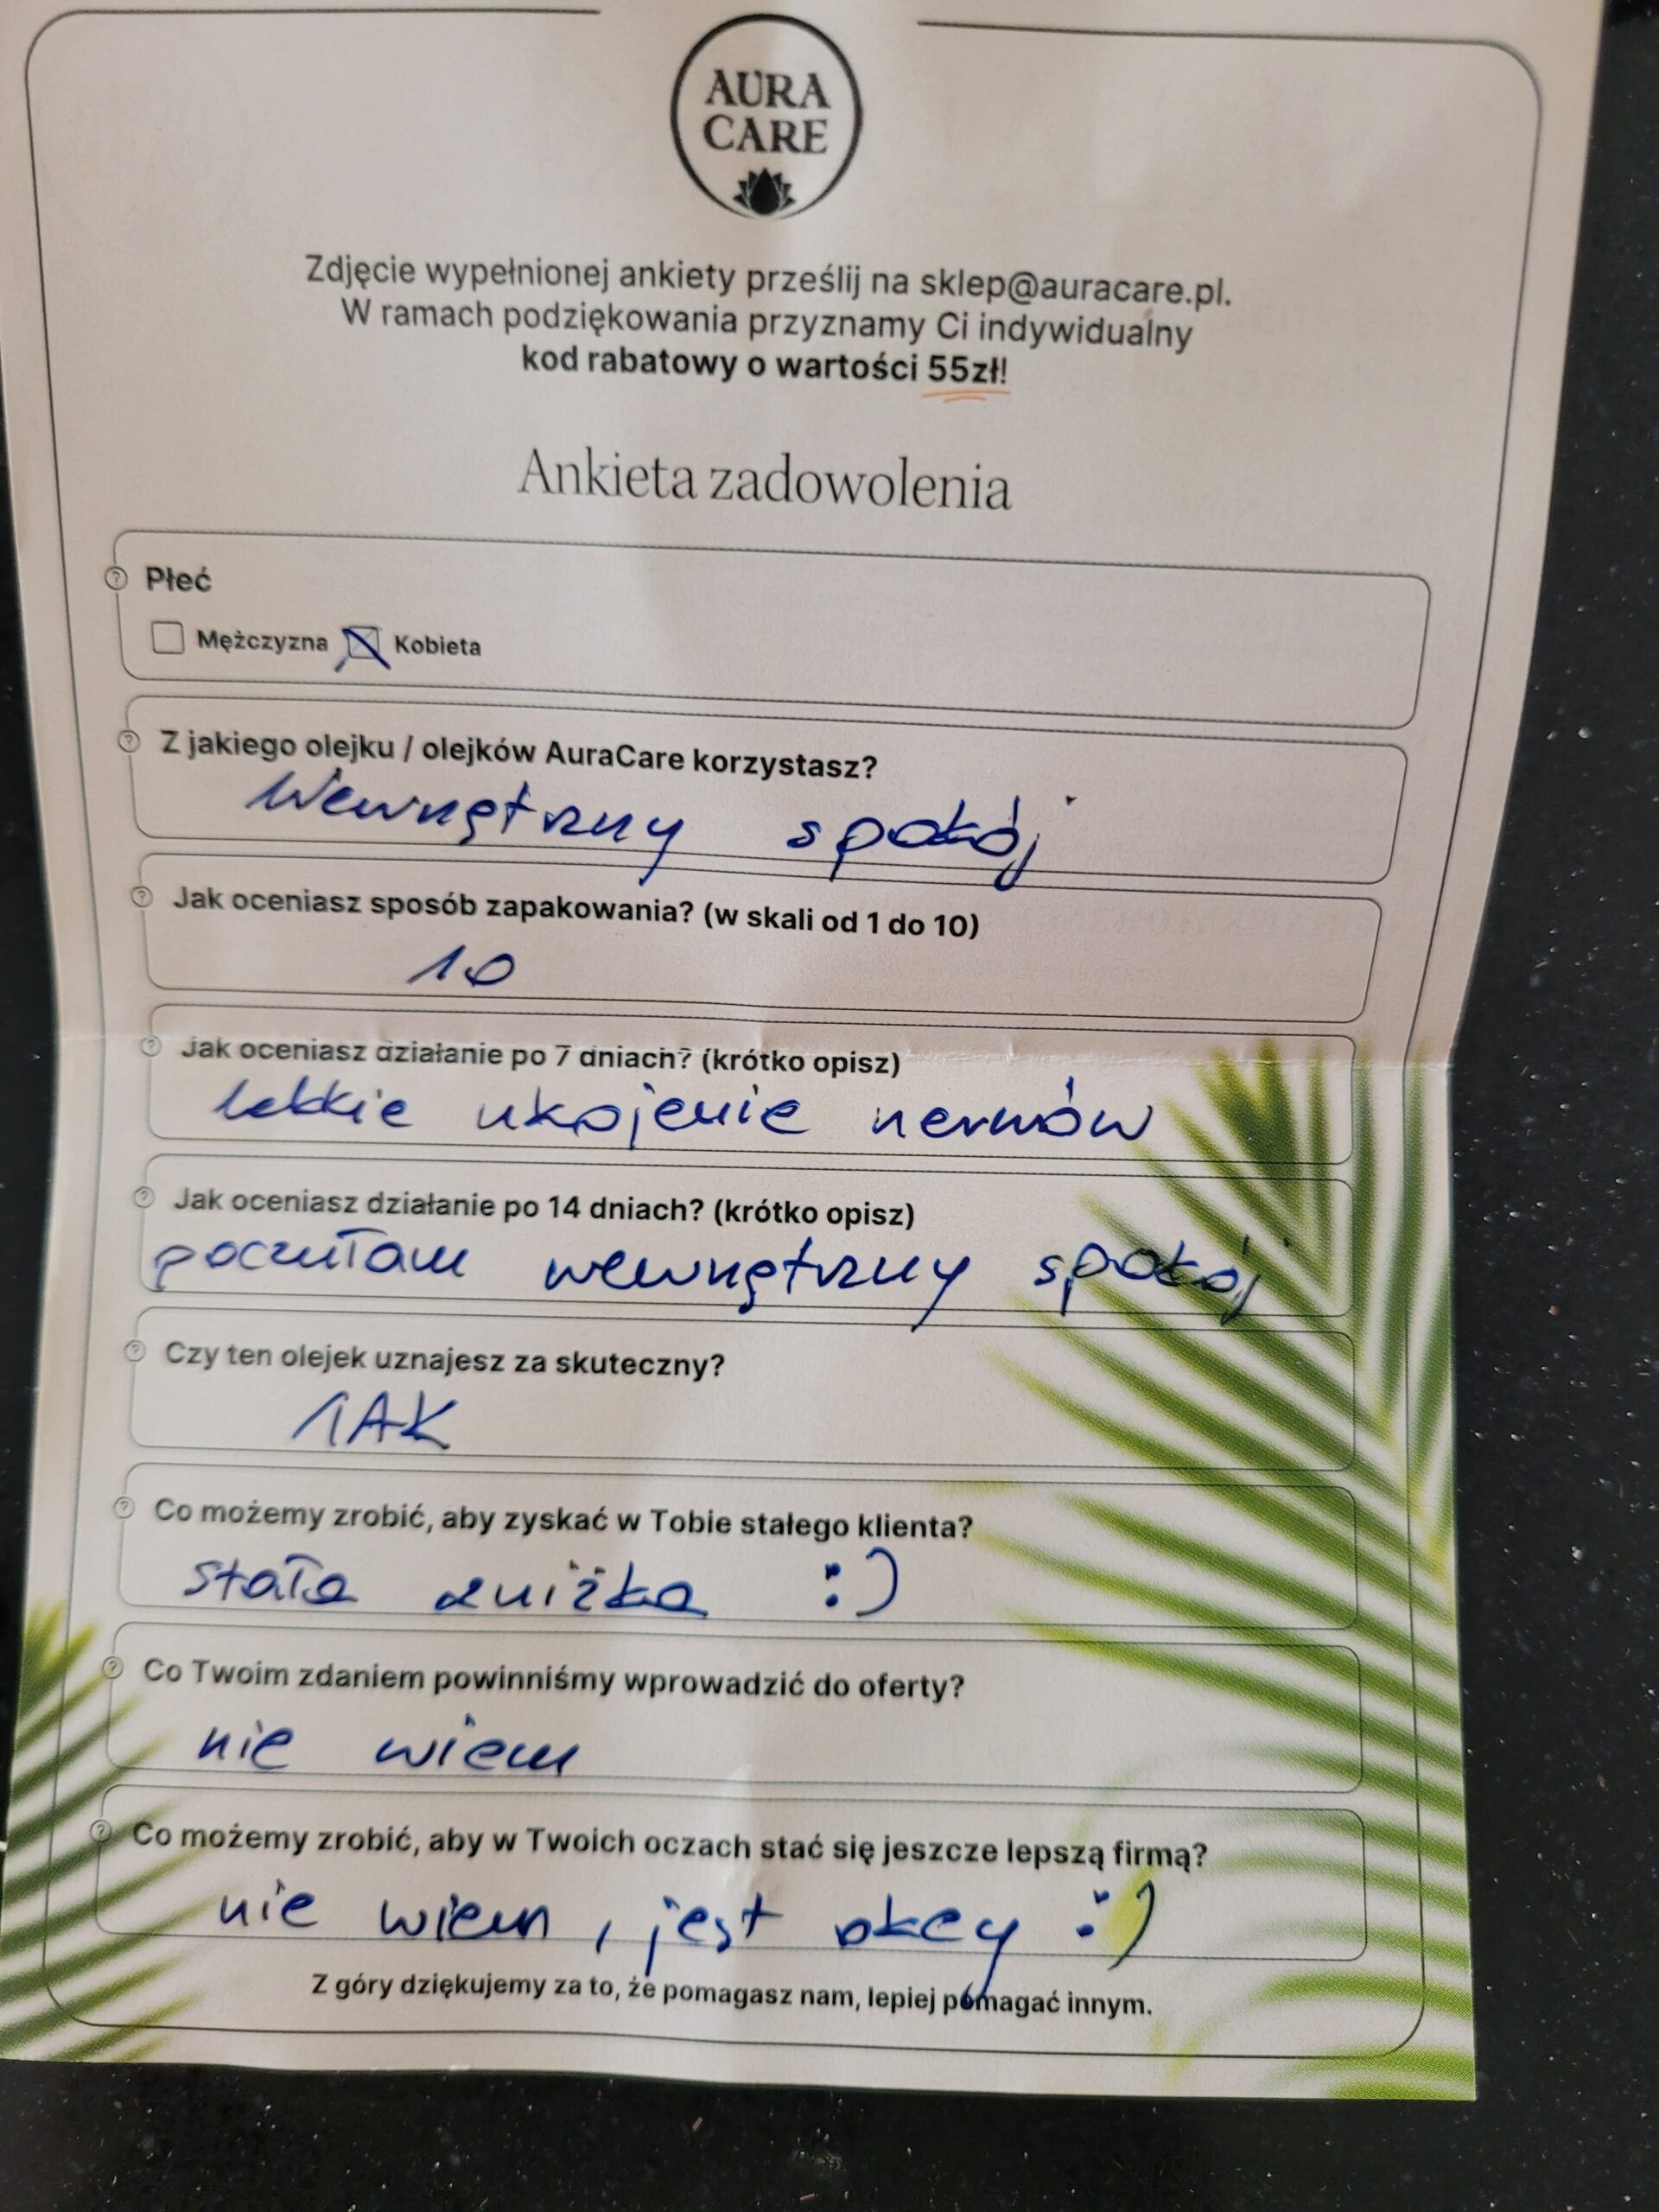 AURA
CARE
Zdjęcie wypełnionej ankiety prześlij na sklep@auracare.pl.
W ramach podziękowania przyznamy Ci indywidualny
kod rabatowy o wartości 55zł!
Ankieta zadowolenia
Płeć
Mężczyzna Kobieta
Z jakiego olejku / olejków AuraCare korzystasz?
Wewnętrzny spokój
Jak oceniasz sposób zapakowania? (w skali od 1 do 10)
10
Jak oceniasz działanie po 7 dniach? (krótko opisz)
lekkie ukojenie nerwów
Jak oceniasz działanie po 14 dniach? (krótko opisz)
poczułam wewnętrzny spokój
Czy ten olejek uznajesz za skuteczny?
TAK
Co możemy zrobić, aby zyskać w Tobie stałego klienta?
stała zniżka :)
Co Twoim zdaniem powinniśmy wprowadzić do oferty?
nie wiem
Co możemy zrobić, aby w Twoich oczach stać się jeszcze lepszą firmą?
nie wiem, jest okey :)
Z góry dziękujemy za to, że pomagasz nam, lepiej pomagać innym.